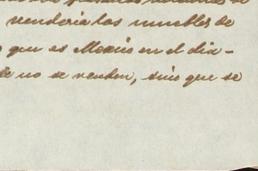 venderia los muebles de
que es Mexico en el dia-
no se venden, sino que se